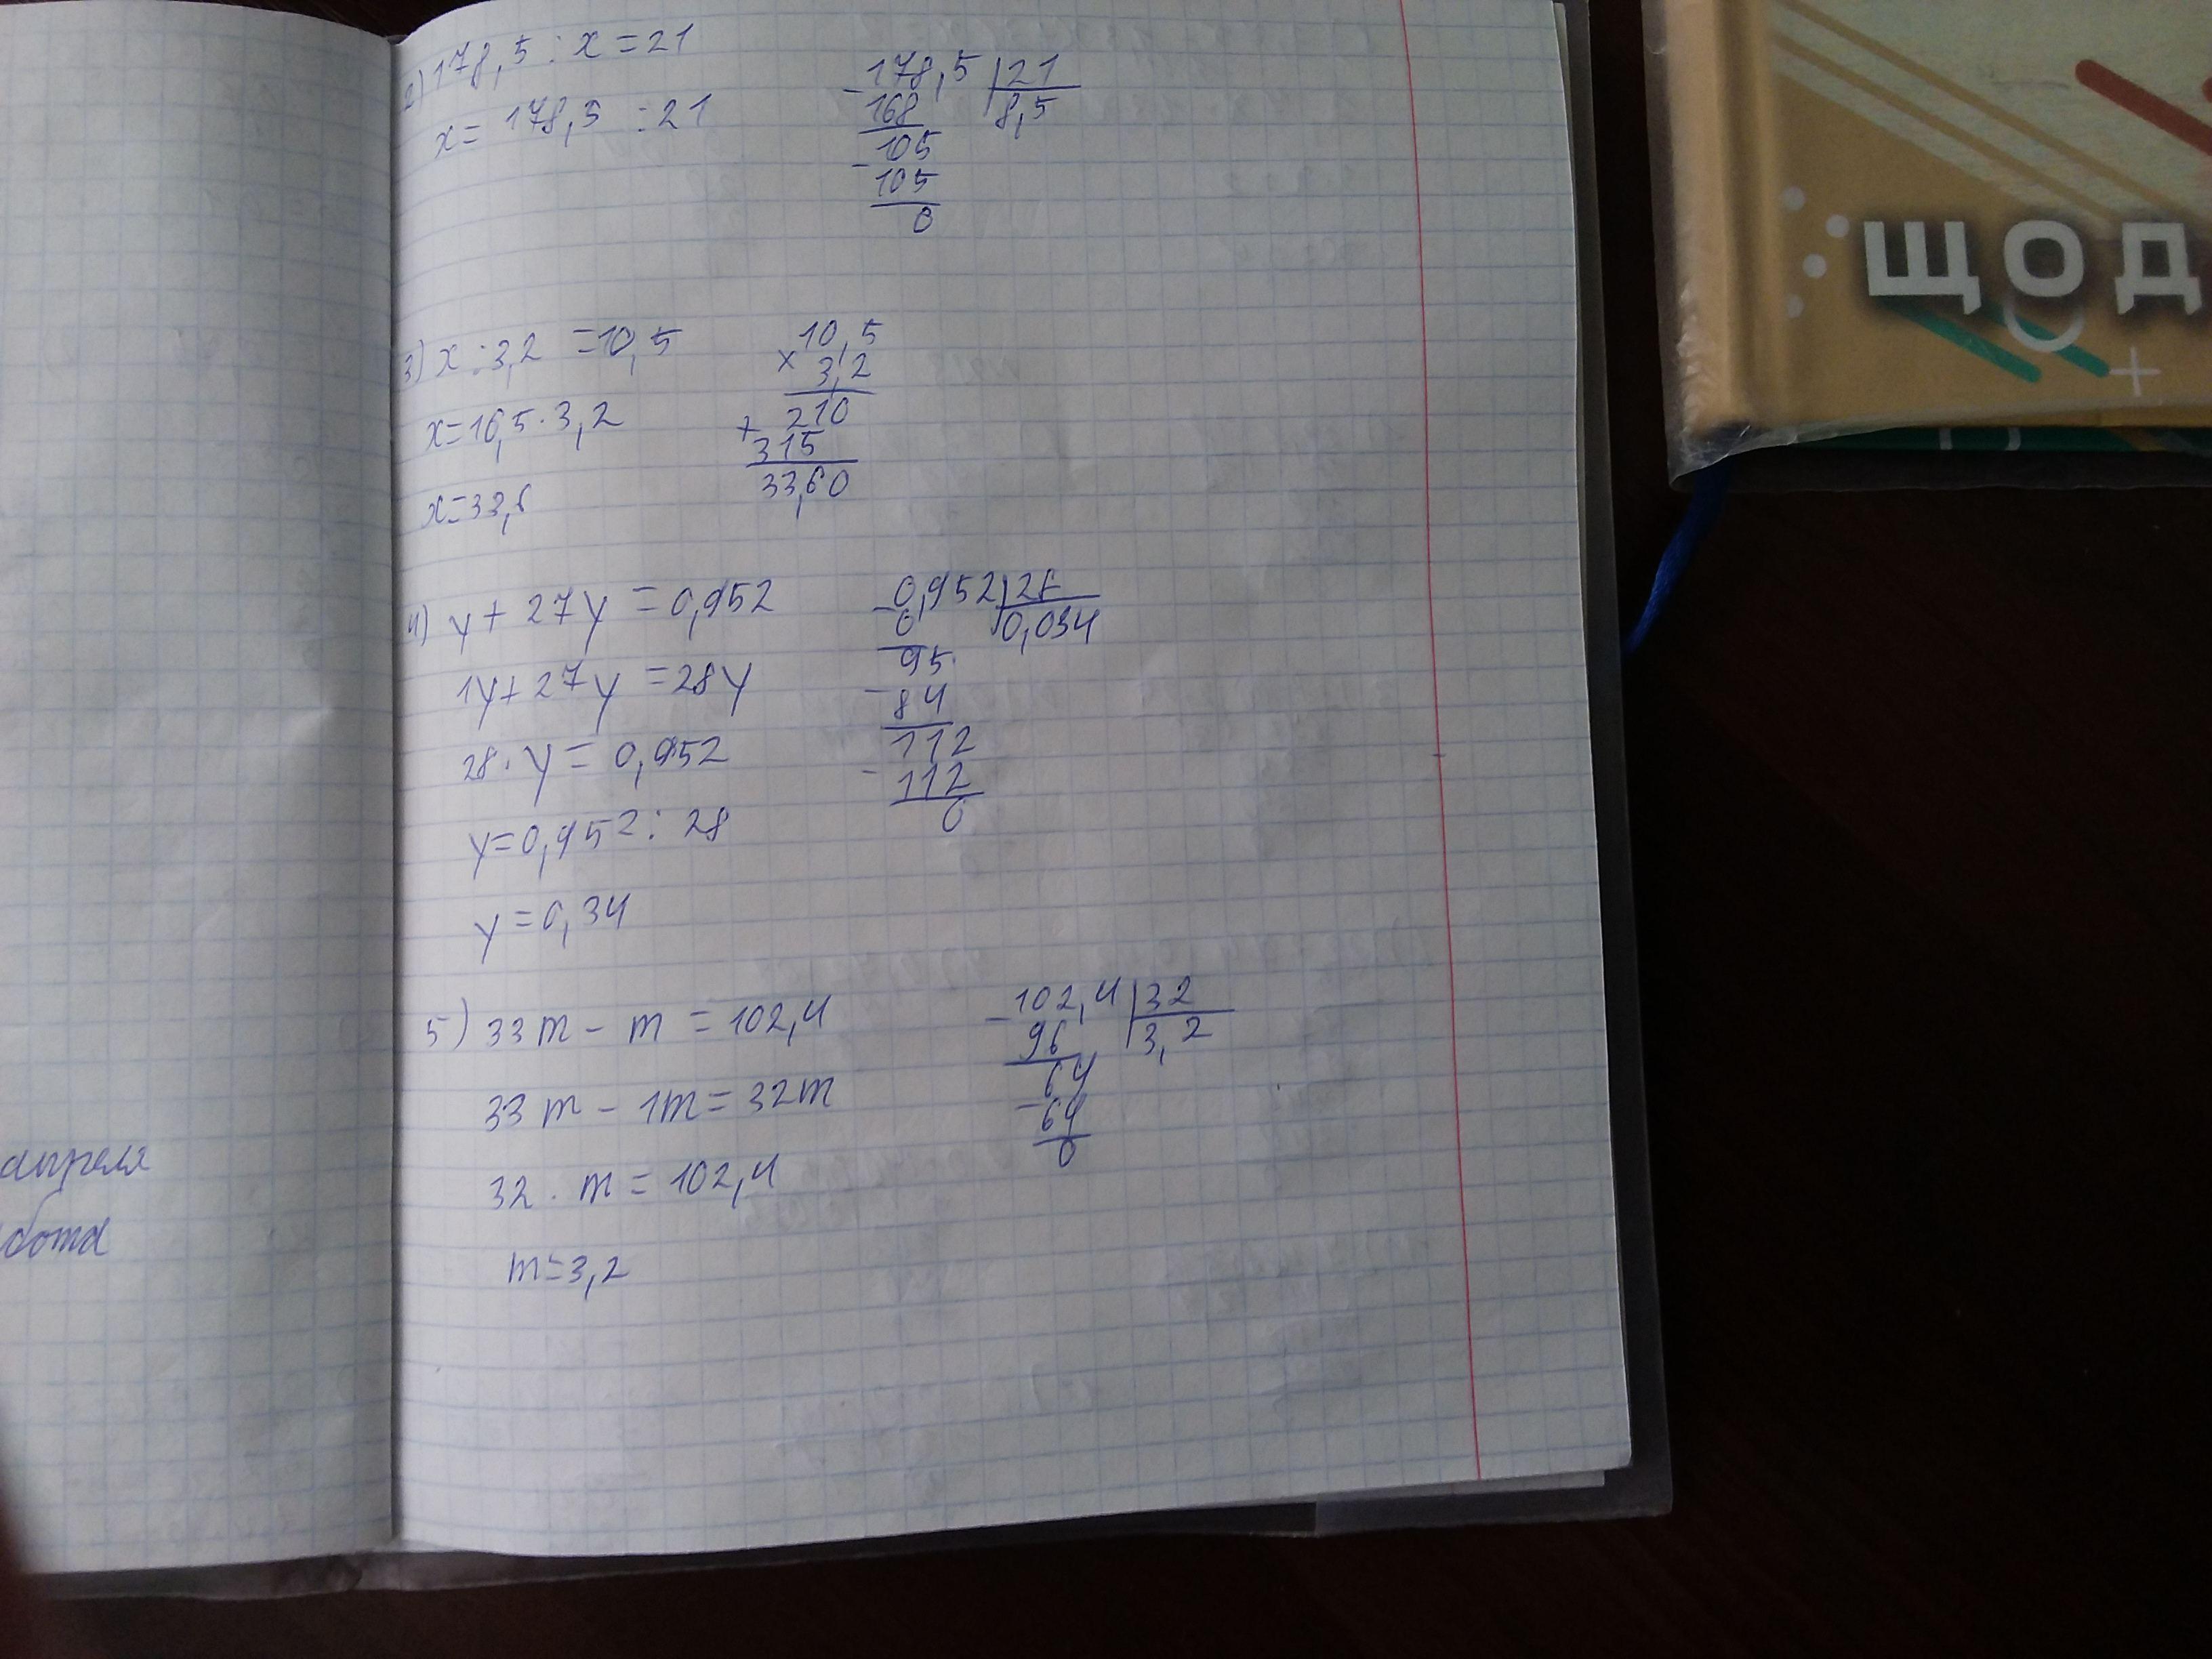 2) 178,5 : x = 21
x = 178,5 : 21
- 178,5 | 21
168 8,5
- 105
105
0
3) x : 3,2 = 10,5
x = 10,5 · 3,2
x = 33,6
10,5
× 3,2
+ 210
315
33,60
4) y + 27y = 0,952
1y + 27y = 28y
28 · y = 0,952
y = 0,952 : 28
y = 0,34
- 0,952 | 28
0 0,034
95
- 84
112
- 112
0
5) 33m - m = 102,4
33m - 1m = 32m
32 · m = 102,4
m = 3,2
- 102,4 | 32
96 3,2
64
- 64
0
апреля
бота
ЩОД